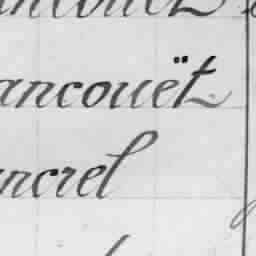 ancouët
ncrel